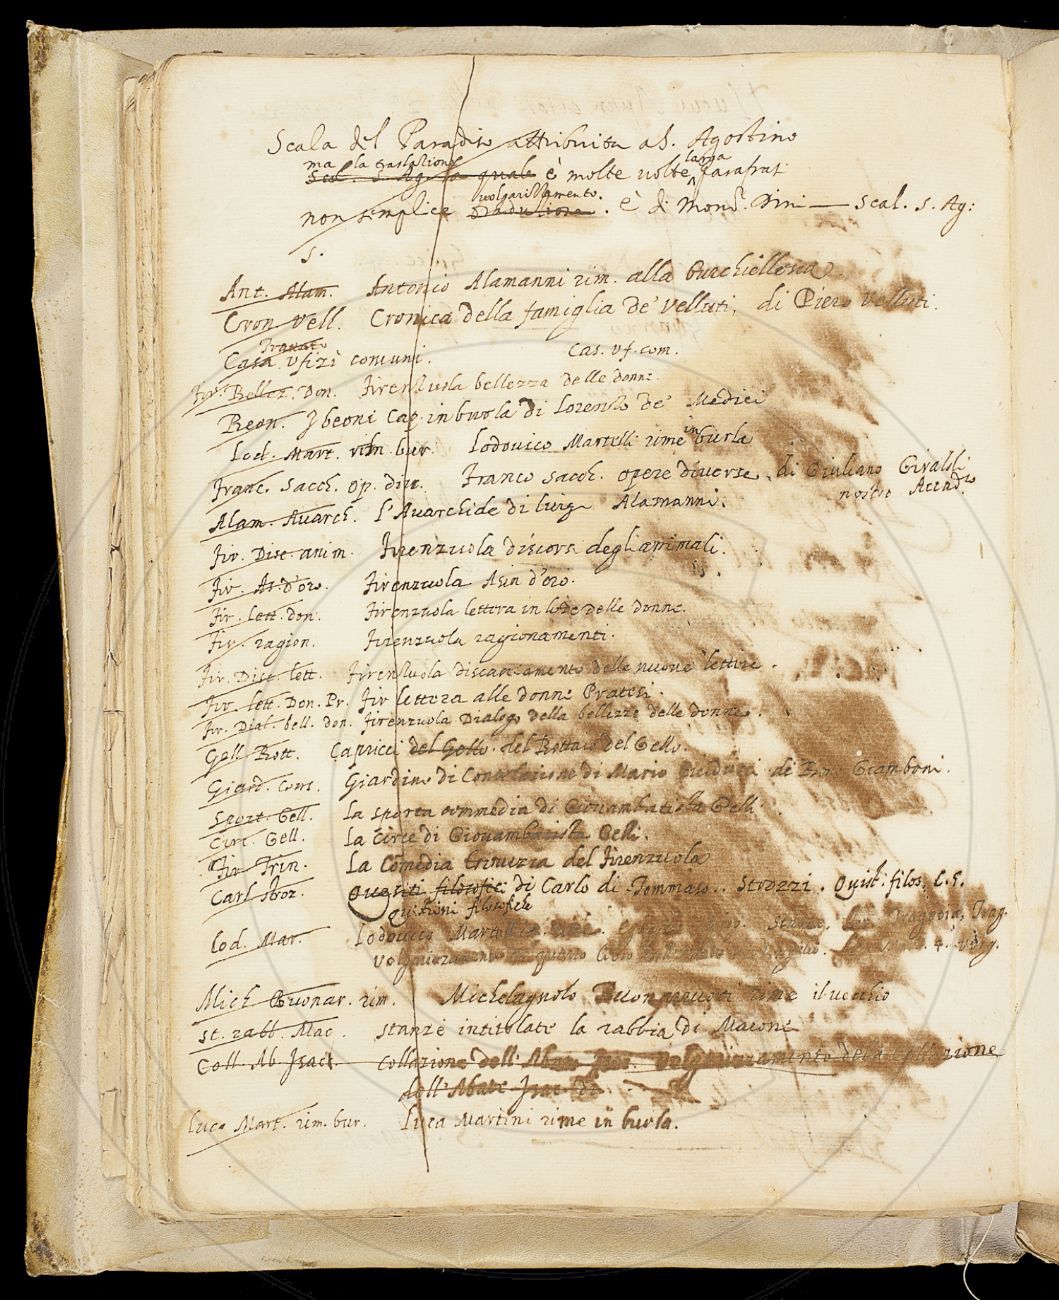 Scala del Paradiso attribuita a S. Agostino
ma la traslazione
Scal. S. Ag. la quale è molte volte larga parafras
volgarizzamento.
non semplice Traduzione. È di Mons. Dini — Scal. S. Ag:
S.
Ant. Alam. Antonio Alamanni rim. alla Burchiellesca
Cron. Vell. Cronica della famiglia de' Velluti, di Piero Velluti.
Tranato
Casa Ufizi comuni. Cas. Uf. com.
Fir. Bellez. Don. Firenzuola bellezza delle donne.
Beon. I beoni Cap. in burla di Lorenzo de' Medici
Lod. Mart. rim. bur. Lodovico Martelli rime in burla
Franc. Sacch. op. div. Franco Sacch. opere diverse, di Giuliano Giraldi
nostro Accad.co
Alam. Avarch. L'Avarchide di Luigi Alamanni.
Fir. Disc. anim. Firenzuola discors. degl animali.
Fir. As. D'oro. Firenzuola Asin d'oro.
Fir. lett. don. Firenzuola lettera in lode delle donne.
Fir. ragion. Firenzuola ragionamenti.
Fir. Disc. lett. Firenzuola discacciamento delle nuove lettere.
Fir. lett. Don. Pr. Fir lettera alle donne Pratesi.
Fir. Dial. bell. don. Firenzuola Dialogo della bellezze delle donne.
Gell. Bott. Capricci del Gello. del Bottaio del Gello.
Giard. Cons. Giardino di Consolazione di Mario Guiducci di Bono Giamboni.
Sport. Gell. La sporta commedia di Giovambatista Gelli
Circ. Gell. La Circe di Giovambatista Gelli.
Fir. Trin. La Comedia trinuzia del Firenzuola
Carl. Stroz. Quesiti filosofic. di Carlo di Tommaso. Strozzi. Quist. filos. C. S.
Quistioni filosofiche
Lod. Mar. Lodovico Martelli rime. Stanze, Tragedia, Trag.
volgarizzamento del quarto libro 4. Virg.
Mich. Buonar. rim. Michelagnolo Buonarruoti rime il vecchio
St. rabb. Mac. stanze intitolate la rabbia di Macone
Coll. Ab. Isac. Collazione dell'Abate Isac. Volgarizzamento della Collazione
dell'Abate Isac di
Luca Mart. rim. bur. Luca Martini rime in burla.